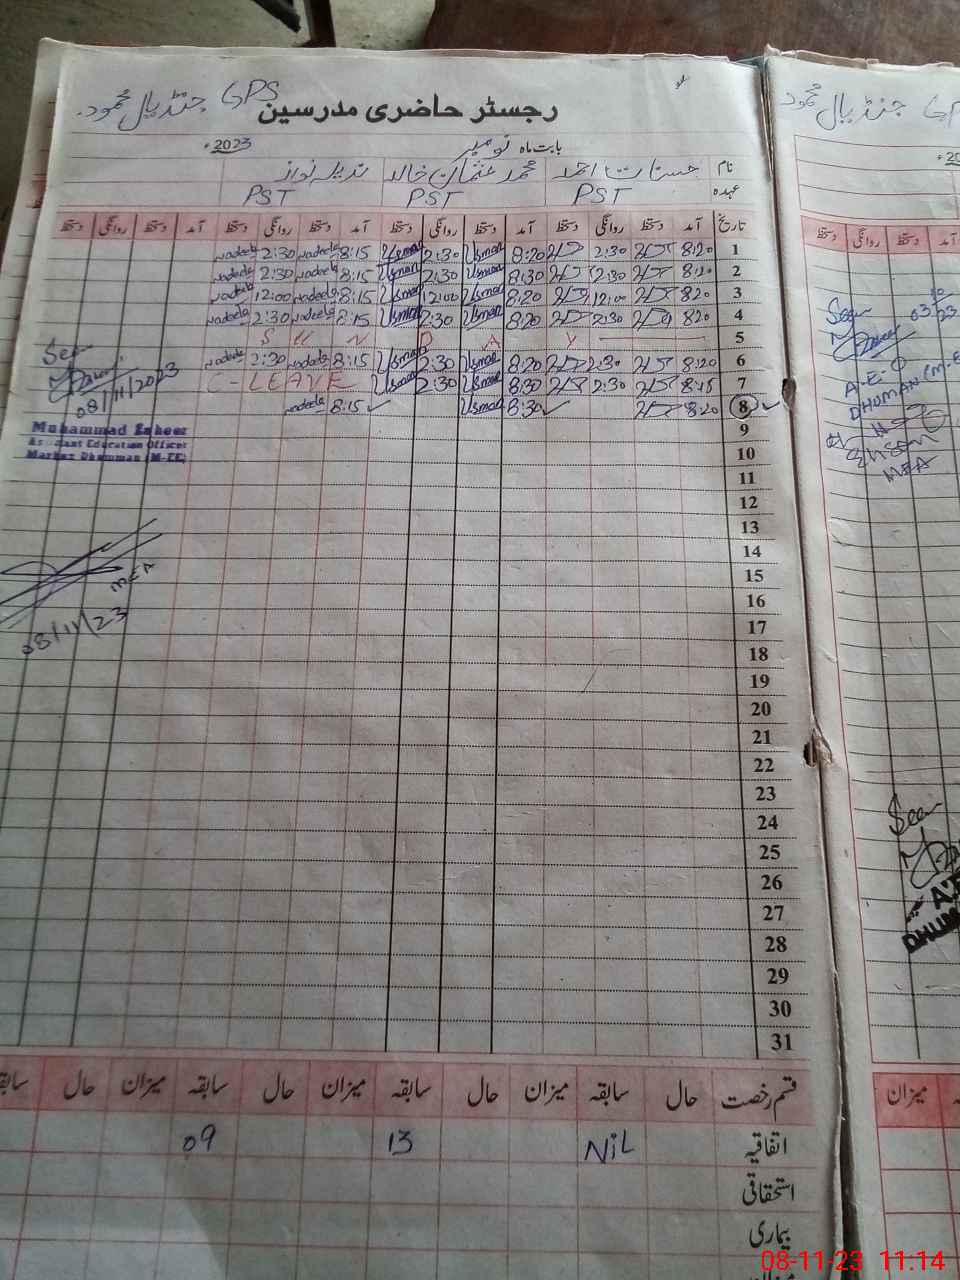 GPS جنڈیال محمود
رجسٹر حاضری مدرسین
بابت ماہ نومبر 2023ء
نام حسنات احمد محمد عثمان خالد ندیلہ نواز
عہدہ PST PST PST
تاریخ آمد دستخط روانگی دستخط آمد دستخط روانگی دستخط آمد دستخط روانگی دستخط آمد دستخط روانگی دستخط
1 8:20 2:30 8:20 Usman 2:30 Usman 8:15 nadeela 2:30 nadeela
2 8:20 2:30 8:30 Usman 2:30 Usman 8:15 nadeela 2:30 nadeela
3 8:20 12:00 8:20 Usman 12:00 Usman 8:15 nadeela 12:00 nadeela
4 8:20 2:30 8:20 Usman 2:30 Usman 8:15 nadeela 2:30 nadeela
5 S U N D A Y
6 8:20 2:30 8:20 Usman 2:30 Usman 8:15 nadeela 2:30 nadeela
7 8:15 2:30 8:30 Usman 2:30 Usman C-LEAVE
8 8:20 8:30 Usman 8:15 nadeela
9
10
11
12
13
14
15
16
17
18
19
20
21
22
23
24
25
26
27
28
29
30
31
Seen
08/11/2023
Muhammad Zaheer
Assistant Education Officer
Markaz Dhumman (M-EE)
MEA
08/11/23
قسم رخصت حال سابقہ میزان حال سابقہ میزان حال سابقہ میزان حال سابقہ
اتفاقیہ NIL 13 09
استحقاقی
بیماری
جنڈیال محمود GPS
روانگی دستخط آمد
Seen
03/10/23
A.E.O
DHUMAN (M-E
Ehsan
MEA
Seen
A.E
DHUM
میزان
08-11-23 11:14